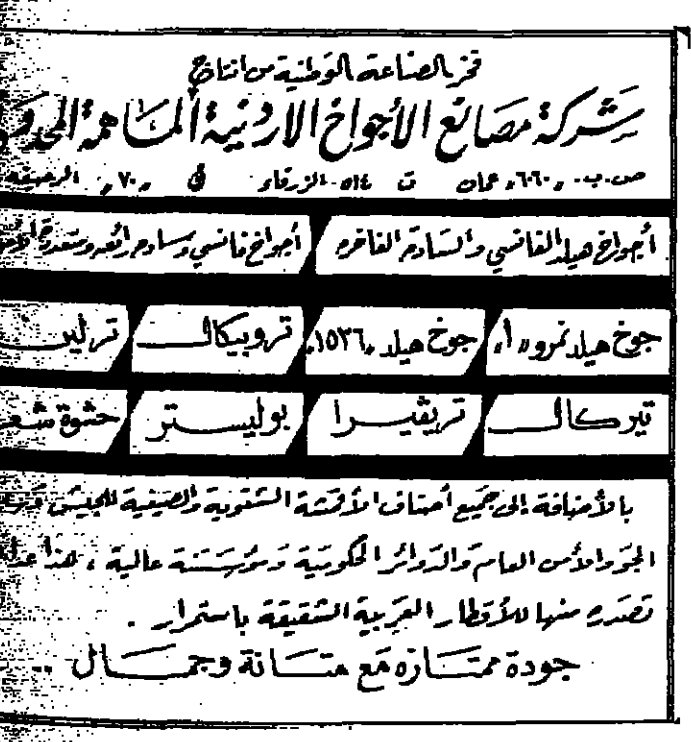 فخر الصناعة الوطنية من انتاج
شركة مصانع الأجواخ الاردنية المساهمة
ص.ب. ٦٠٦٠، عمان ت ٥١٤ الزرقاء ٧٠
أجواخ هيلد الفانسي والسادة الفاخره أجواخ فانسي وساده رائعه ومتعددة
جوخ هيلد نمره ١، جوخ هيلد ١٥٣٦، تروبيكال ترلين
تيركال تريڤيرا بوليستر حشوة
بالأضافة إلى جميع أصناف الأقمشة الشتوية والصيفية للجيش
الجو والأمن العام والدوائر الحكومية عالية ، هذا عدا
تصدره منها للأقطار العربية الشقيقة باستمرار .
جودة ممتازه مع متانة وجمال ..